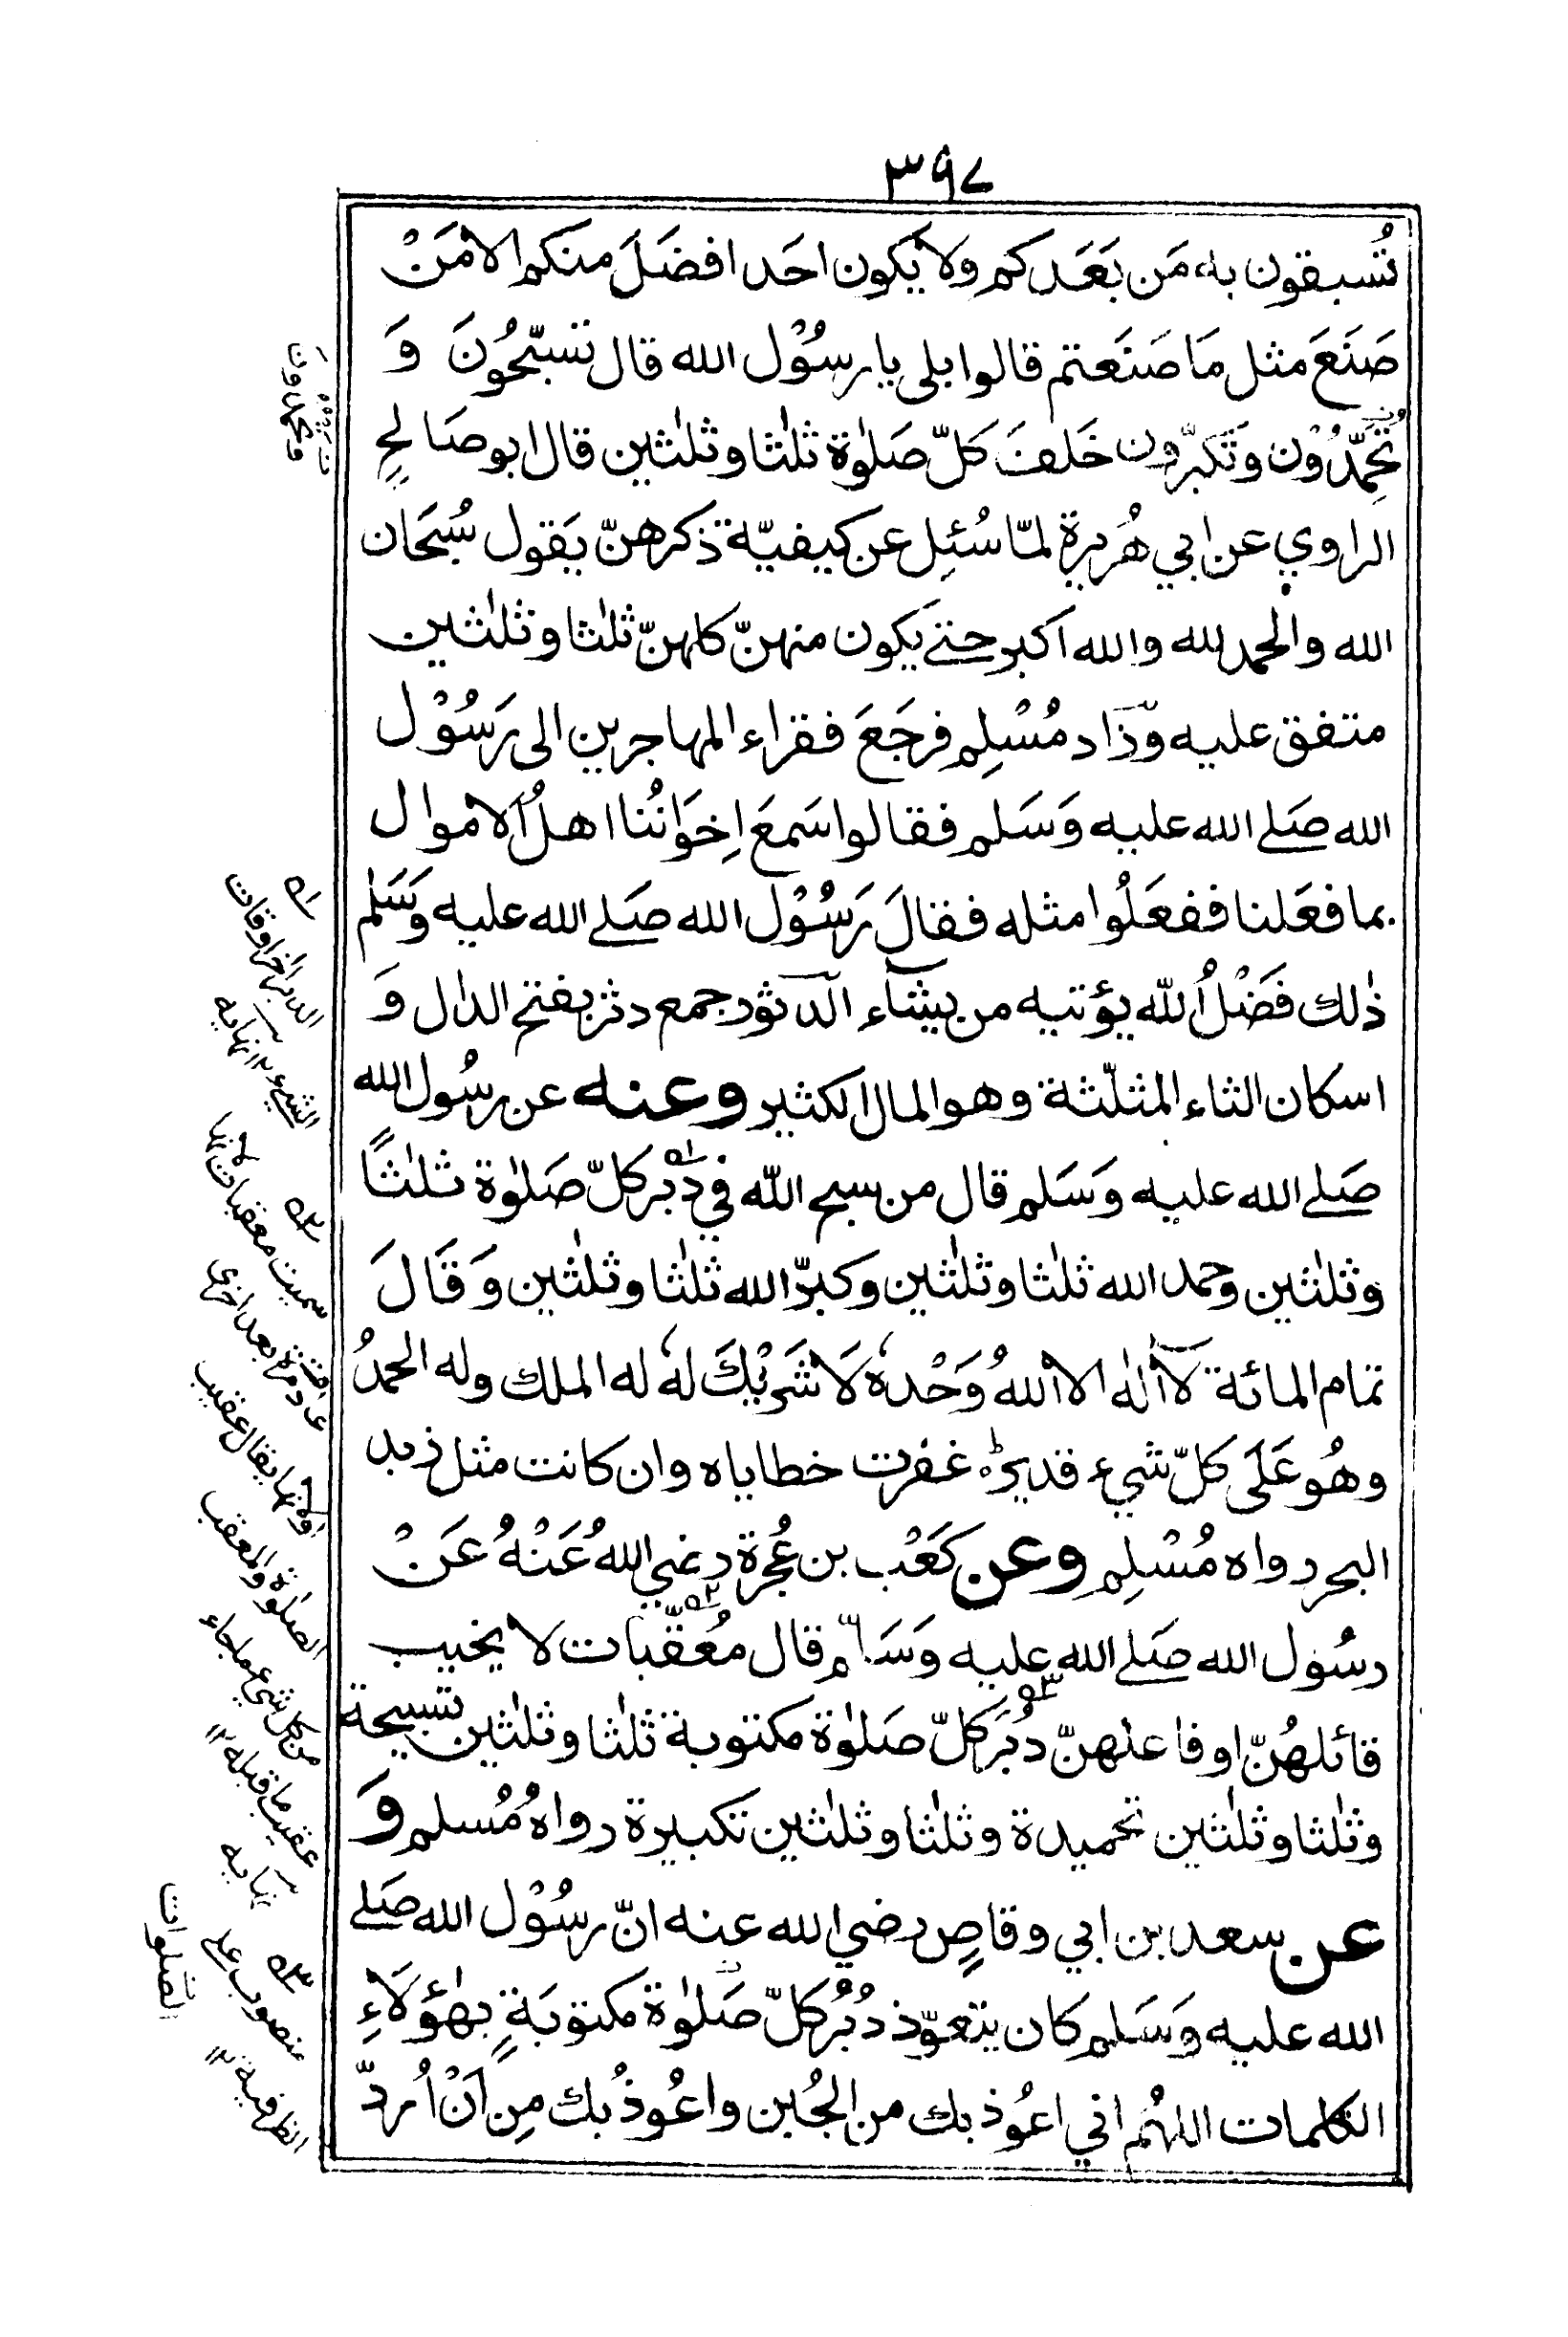 ٣٩٧
تُسبقون به مَن بَعَدكم ولا يَكون احَد افضَلَ منكم الا مَنْ
صَنَعَ مثل مَا صَنَعتم قالوا بلى يا رسُوْل الله قال تسبّحُونَ وَ
تحمّدُوْن وَتَكبّرون خَلفَ كلّ صَلوٰة ثلٰثا وثلٰثين قال ابو صَالحٍ
الراوي عن ابي هُريرة لمّا سُئِل عن كيفيّة ذكرهنّ يَقول سُبحَان
الله والحمد لله والله اكبر حتے يَكون منهنّ كلهنّ ثلٰثا وثلٰثين
متفق عليه وّزَاد مُسْلِم فرجَعَ فقراء المهاجرين الى رَسُوْل
الله صَلے الله عليه وَسَلم فقالوا سَمعَ اِخوَانُنا اهلُ الاموال
بما فعَلنا ففعَلُوا مثله فقالَ رَسُوْل الله صَلے الله عليه وَسَلم
ذٰلك فَضْلُ اللّه يؤتيه من يشآء الدّثور جمع دثر بفتح الدال وَ
اسكان الثاء المثلّثة وهو المال الكثير وعنه عن رسُول الله
صَلے الله عليه وَسَلم قال من سبح اللّه في دُبر كلّ صَلوٰة ثلٰثاً
وثلٰثين وحمد الله ثلٰثا وثلٰثين وكبرّ الله ثلٰثا وثلٰثين وَقَالَ
تمام المائة لآ الٰه الا اللهُ وَحْدهٗ لَا شَريْكَ لهٗ له الملك وله الحمدُ
وهُو عَلَى كلّ شيء قديرٌ غفرت خطاياه وان كانت مثل زبد
البحر رواه مُسْلِم وعن كَعَبْ بن عُجرة رضي اللهُ عَنْهُ عَنْ
رسُول الله صَلے الله عليه وَسَلّم قال مُعَقّبات لا يخيب
قائلهُنّ او فاعلهنّ دُبَر كلّ صَلوٰة مكتوبة ثلٰثا وثلٰثين تسبيحة
وثلٰثا وثلٰثين تحميدة وثلٰثا وثلٰثين تكبيرة رواهُ مُسلم وَ
عن سعد بن ابي وقاصٍ رضي الله عنه انّ رسُوْل الله صَلے
الله عليه وَسَلم كان يتعوّذ دُبُر كلّ صَلوٰة مكتوبَةٍ بهٰؤلَاءِ
الكلمات اللهُم اني اعُوذ بك من الجُبن واعُوذُ بك مِن اَنْ اُردّ
وتحمدون
١ه
الدبر آخر اوقات
الشيء ١٢ نهايه
٢ه
سميت معقبات لانها
عادت مرة بعد اخرى
او لانها يقال عقيب
الصلوة والمعقب
من كل شيء ما جاء
عقيب ما قبله ١٢
نهايه
٣ه
منصوب على
الظرفية ١٢
الصلوات